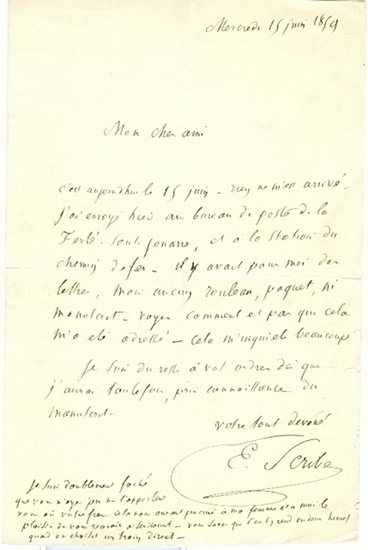 Mercredi 15 juin 1859
Mon cher ami
c'est aujourd'hui le 15 juin. rien ne m'est arrivé -
j'ai envoyé hier au bureau de poste de la
Ferté-sous-jouarre, et à la Station du
chemin de fer - il y avait pour moi des
lettres, mais aucun rouleau, paquet, ni
manuscrit - voyez comment et par qui cela
m'a été adressé - cela m'inquiète beaucoup
Je suis du reste à vos ordres dès que
j'aurai toutefois, pris connaissance du
manuscrit.
votre tout dévoué
E. Scribe
Je suis doublement faché
que vous n'ayez pu me l'apporter
vous ou votre frère cela nous aurait procuré à ma femme et à moi le
plaisir de vous recevoir à Sericourt - vous savez que l'on s'y rend en deux heures
quand on choisit un train direct -